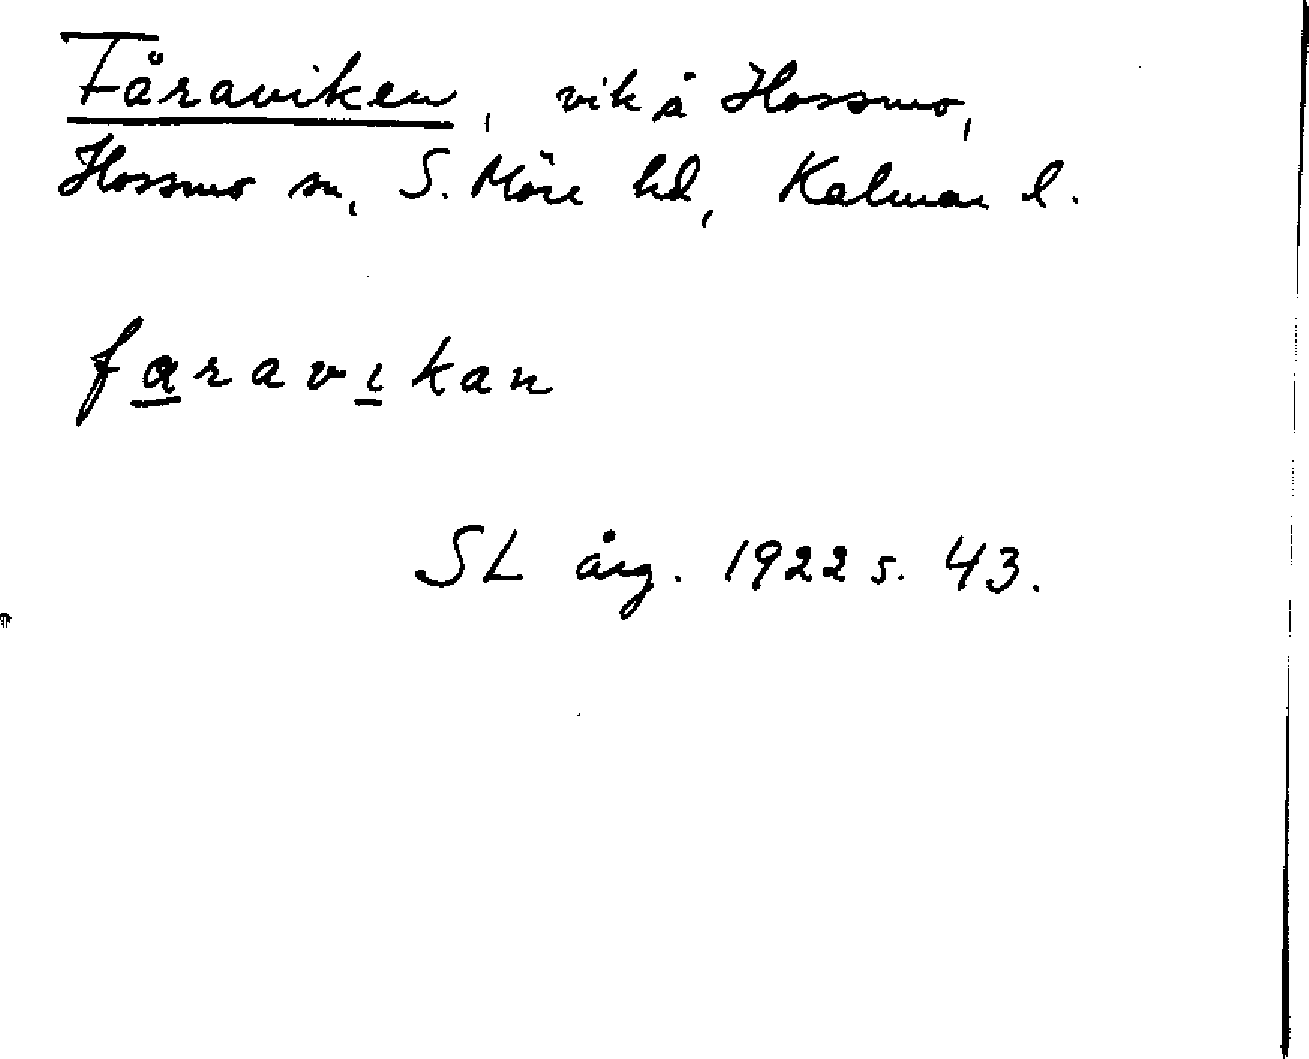 Fåraviken, vik å Hossmo,
Hossmo sn, S. Möre hd, Kalmar l.
faravikan
SL årg. 1922 s. 43.